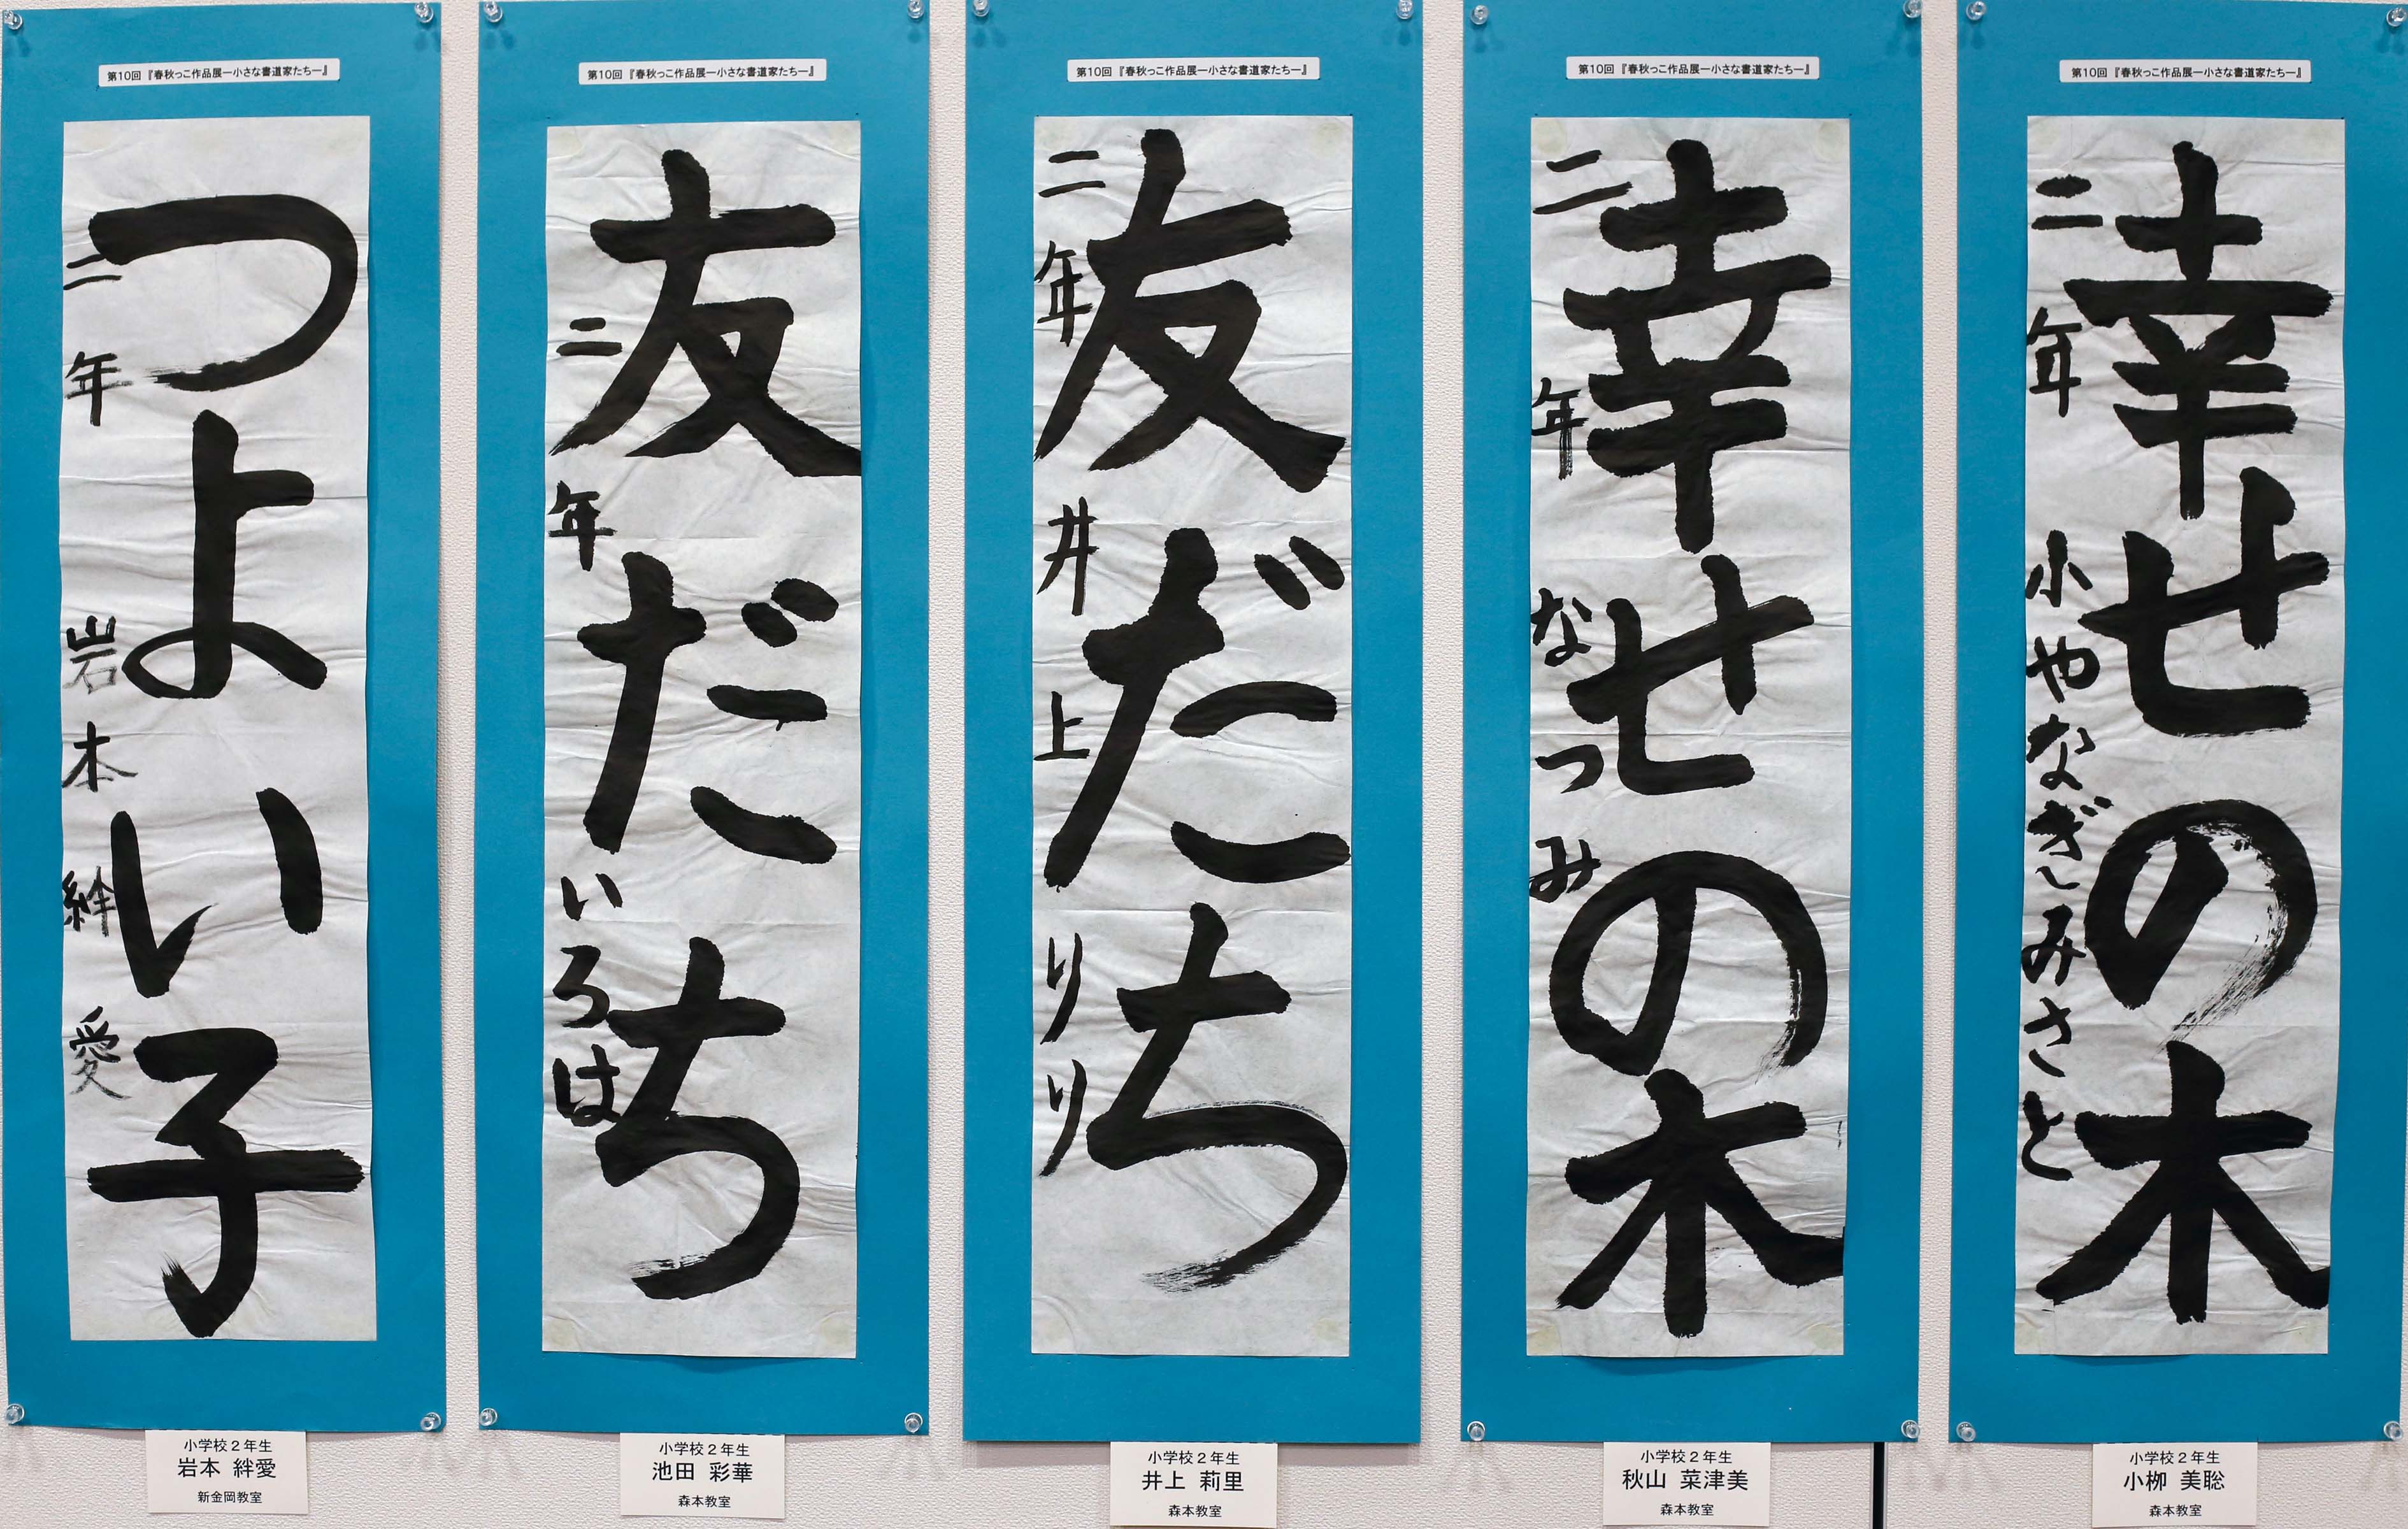 第10回『春秋っこ作品展ー小さな書道家たちー』
つよい子
二年 岩本 絆愛
小学校2年生
岩本 絆愛
新金岡教室
第10回『春秋っこ作品展ー小さな書道家たちー』
友だち
二年 いろは
小学校2年生
池田 彩華
森本教室
第10回『春秋っこ作品展ー小さな書道家たちー』
友だち
二年 井上 りり
小学校2年生
井上 莉里
森本教室
第10回『春秋っこ作品展ー小さな書道家たちー』
幸せの木
二年 なつみ
小学校2年生
秋山 菜津美
森本教室
第10回『春秋っこ作品展ー小さな書道家たちー』
幸せの木
二年 小やなぎみさと
小学校2年生
小栁 美聡
森本教室